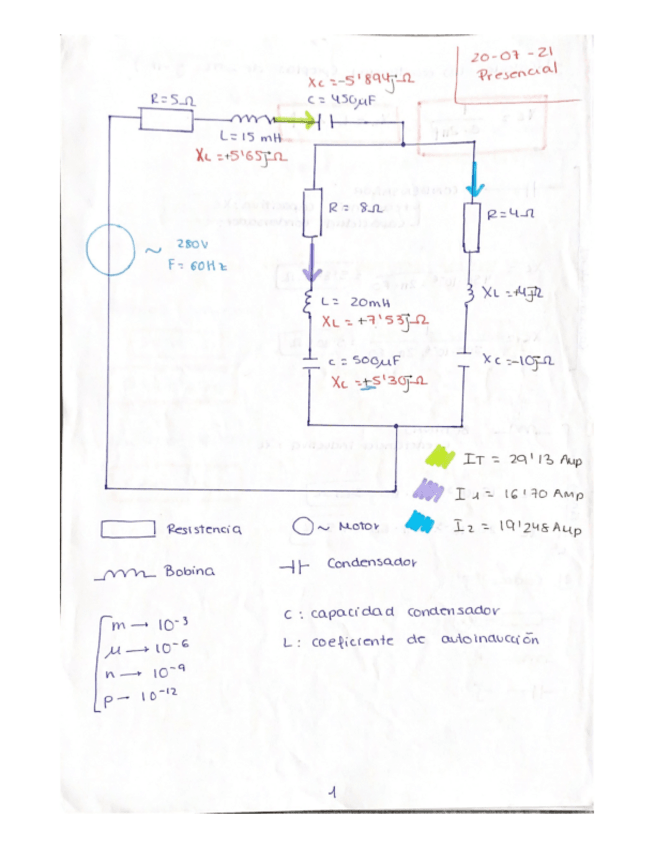 20-07-21
Presencial
Xc = -5'894j Ω
C = 450µF
R = 5Ω
L = 15 mH
XL = +5'65j Ω
280V
F = 60Hz
~
R = 8Ω
R = 4Ω
L = 20mH
XL = +7'53j Ω
XL = +4j Ω
C = 500µF
Xc = +5'30j Ω
Xc = -10j Ω
IT = 29'13 Amp
I1 = 16'70 Amp
I2 = 19'248 Amp
Resistencia
~ Motor
Bobina
Condensador
m → 10-3
µ → 10-6
n → 10-9
p → 10-12
C : capacidad condensador
L : coeficiente de autoinducción
1